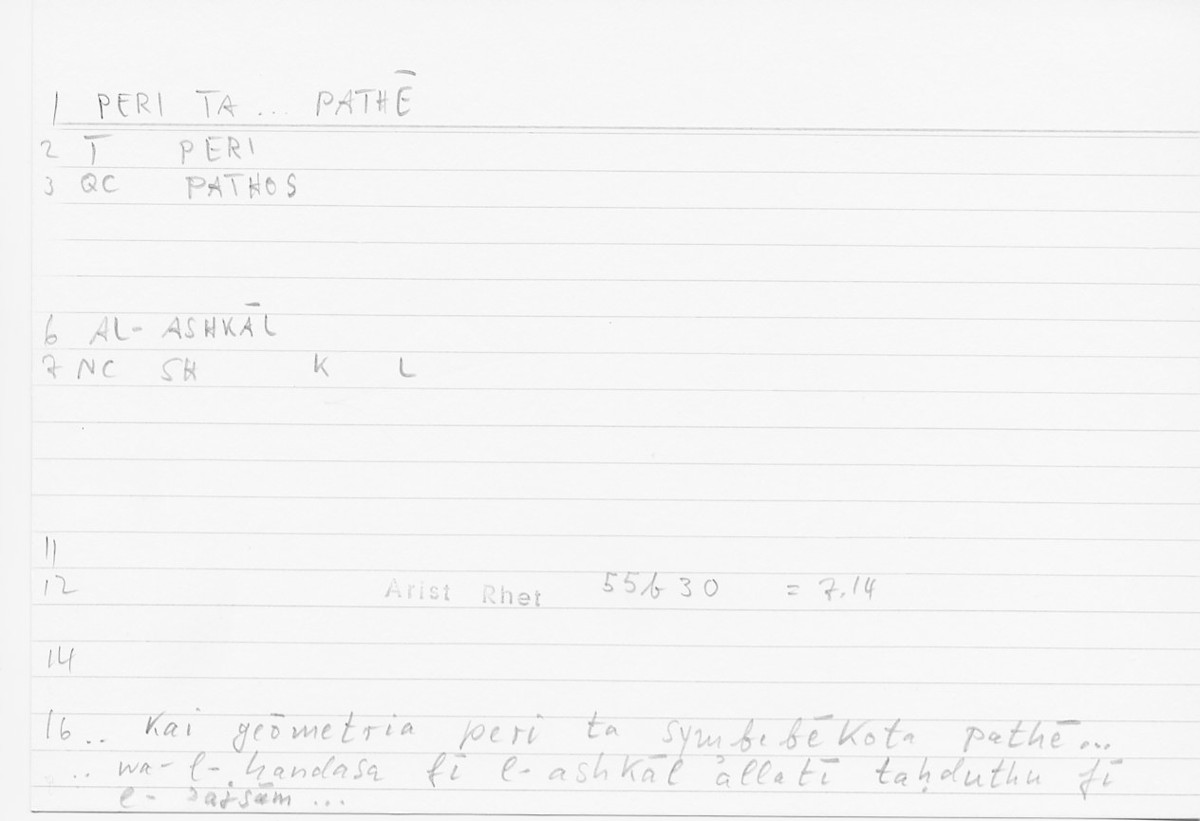 1 PERI TA ... PATHĒ
2 T PERI
3 QC PATHOS
6 AL- ASHKĀL
7 NC SH K L
11
12 Arist Rhet 55b30 = 7.14
14
16.. Kai geōmetria peri ta symbebēkota pathē...
.. wa-l-handasa fī l-ashkāl allatī taḥduthu fī
l-